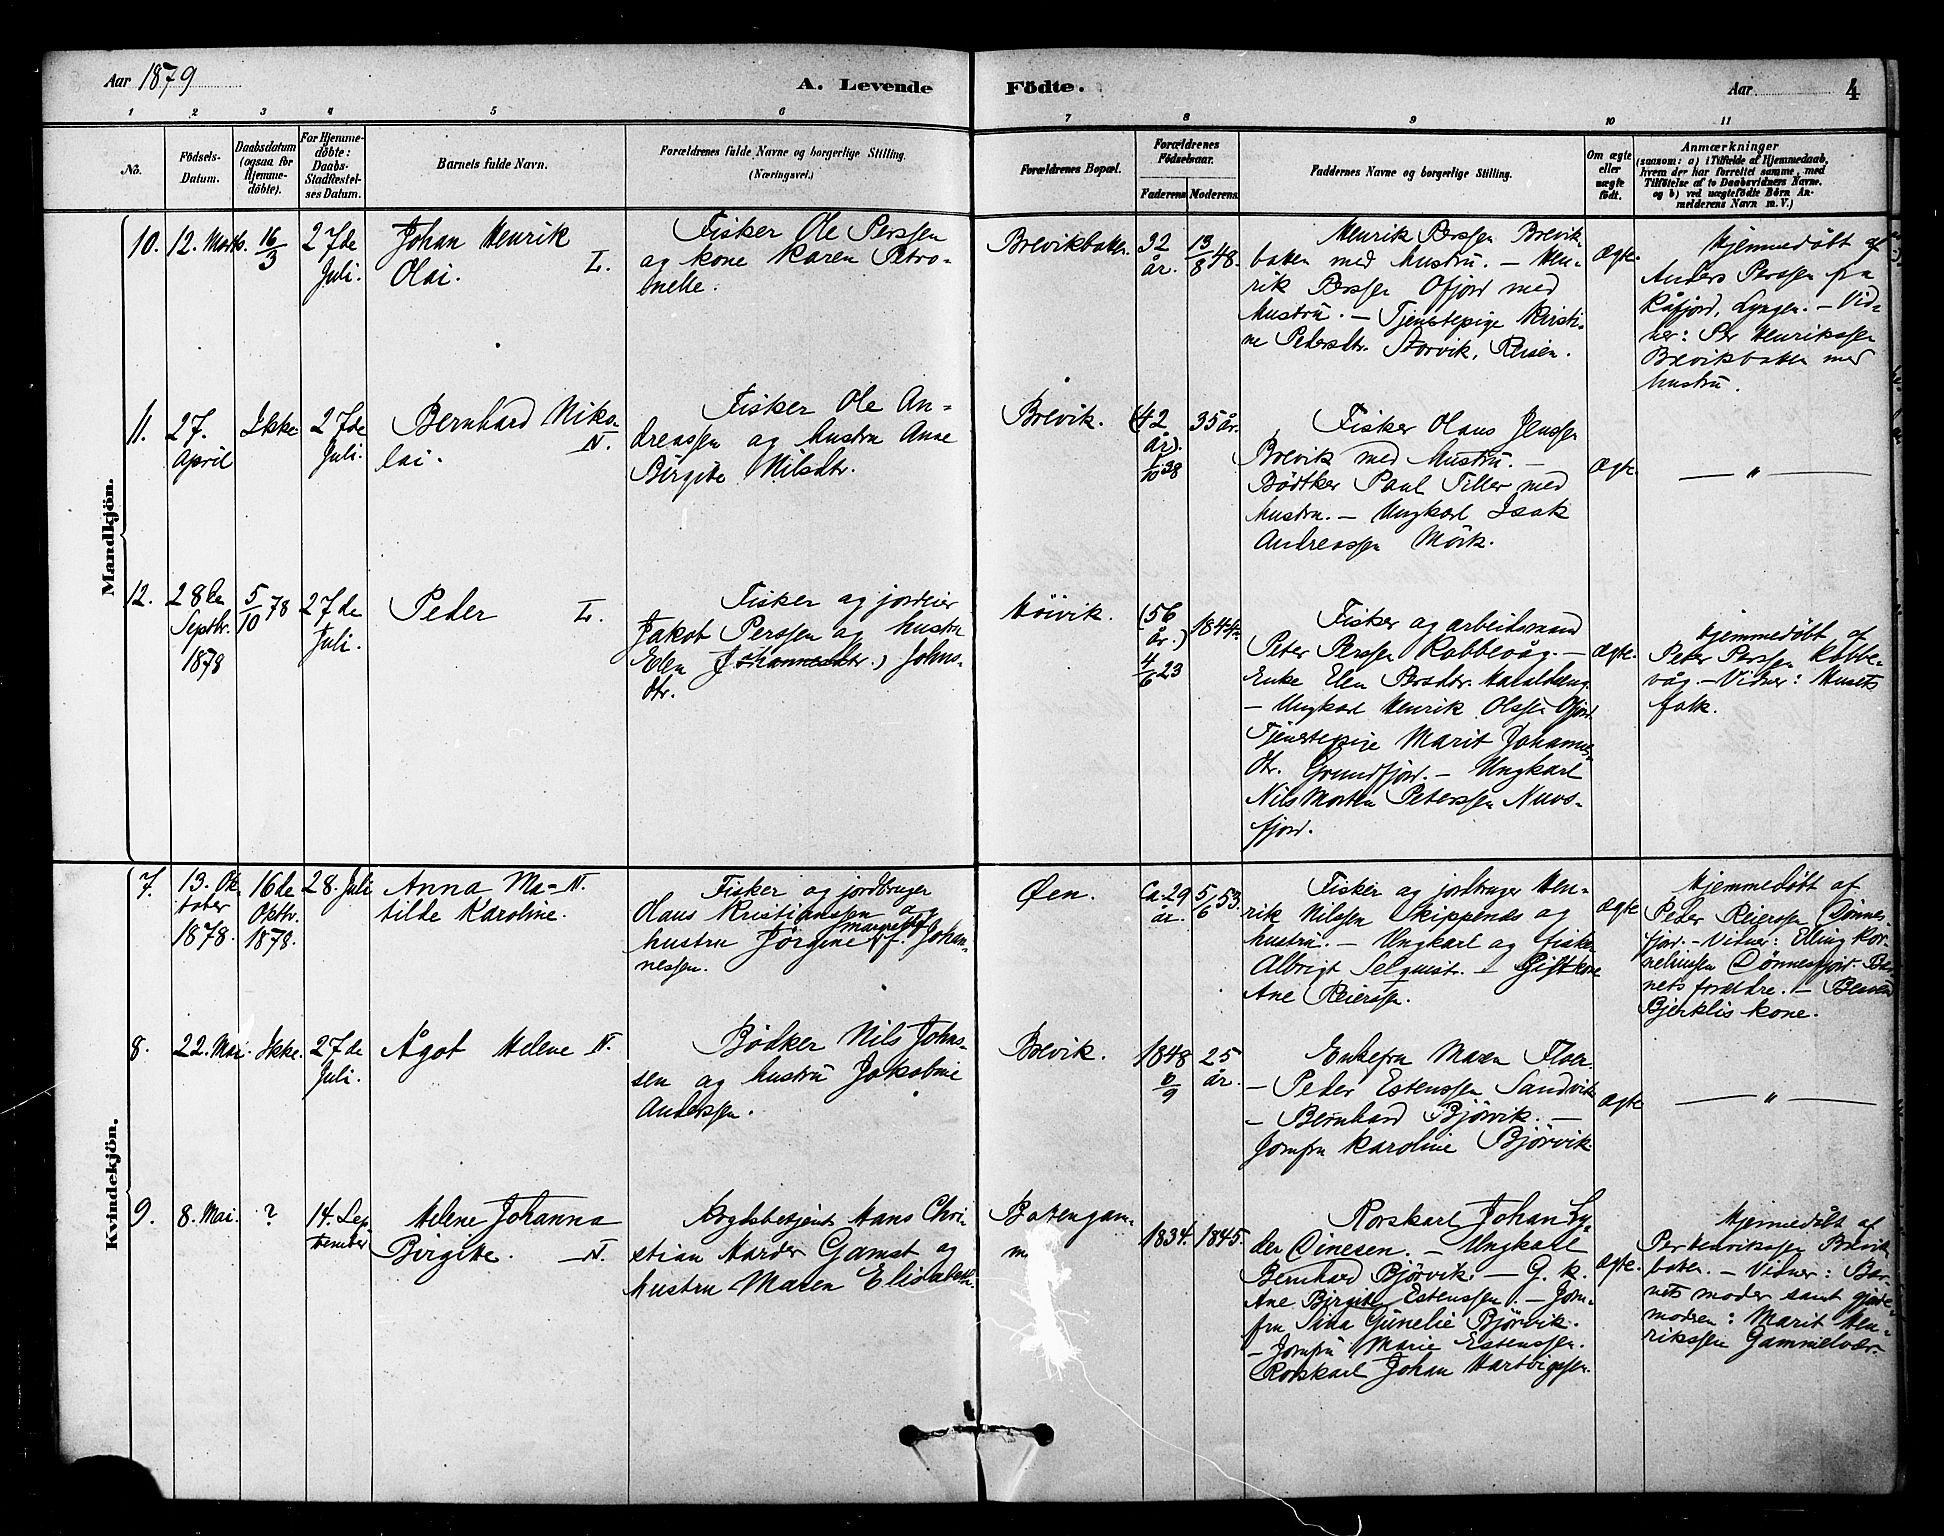 Aar 1879
A. Levende
Födte.
Aar
4
1 2 3 4 5 6 7 8 9 10 11
No.
Födsels-
Datum.
Daabsdatum
(ogsaa for
Hjemme-
döbte).
For Hjemme-
döbte:
Daabs-
Stadfæstel-
ses Datum.
Barnets fulde Navn.
Forældrenes fulde Navne og borgerlige Stilling.
(Næringsvei.)
Forældrenes Bopæl.
Forældrenes
Födselsaar.
Faderens
Moderens
Faddernes Navne og borgerlige Stilling.
Om ægte
eller
uægte
født.
Anmærkninger
(saasom: a) i Tilfælde af Hjemmedaab,
hvem der har forrettet samme, med
Tilföielse af to Daabsvidners Navne,
og b) ved uægtefödte Börn An-
melderens Navn m. V.)
Mandkjön.
10.
12. Marts.
16/3
27de
Juli.
Johan Henrik
Olai.
L.
Fisker Ole Perssen
og kone Karen Petro-
nelle.
Brevikbakken
32
år.
13/8 48.
Henrik Perssen Brevik-
bakken med hustru. — Hen-
rik Perssen Ofjord med
hustru. — Tjenestepige Kirsti-
ne Pedersdtr. Storvik, Reisen.
Ægte.
Hjemmedøbt af
Anders Perssen fra
Kåfjord, Lyngen. — Vid-
ner: Per Henrikssen
Brevikbakken med
hustru.
11.
27.
April
Ikke
27de
Juli.
Bernhard Niko-
lai.
N.
Fisker Ole An-
dreassen og hustru Anne
Birgitte Nilsdtr.
Brevik.
(42
år).
1/10 38
35 år.
Fisker Olaus Jenssen
Brevik med hustru. —
Bødtker Paul Tiller med
hustru. — Ungkarl Isak
Andreassen Mörk.
Ægte.
— " —
12.
28de
Septbr.
1878
5/10 78
27de
Juli.
Peder
L.
Fisker og jordeier
Jakob Perssen og hustru
Elen Johannesdtr.) Johns-
dtr.
Höivik.
(56
år.)
4/6 23
1844
Fisker og arbeidsmand
Peter Perssen Kobbevåg. —
Enke Elen Persdtr. Haraldseng
— Ungkarl Henrik Olssen Ofjord
Tjenestepige Marit Johannes-
dtr. Grundfjord. — Ungkarl
Nils Morten Peterssen Nuvs-
fjord.
Ægte.
Hjemmedøbt af
Peter Perssen Kobbe-
våg. — Vidner: Husets
folk.
Kvindekjön.
7.
13. Ok-
tober
1878.
16de
Oktbr.
1878.
28. Juli
Anna Ma-
tilde Karoline.
N.
Fisker og jordbruger
Olaus Kristianssen og
hustru Jørgine Margrethe f. Johan-
nessen.
Øen.
Ca. 29
år.
5/6 53.
Fisker og jordbruger Hen-
rik Nilssen Skippernæs og
hustru. — Ungkarl og fisker
Albrigt Selquist. — Gift kone
Ane Reierssen.
Ægte
Hjemmedøbt af
Peder Reierssen Dönnes-
fjord. — Vidner: Elling Kor-
neliussen Dönnesfjord. Bar-
nets forældre. —
Bjerklis kone.
8.
22. Mai.
Ikke.
27de
Juli.
Ågot Helene
N.
Bödker Nils Johns-
sen og hustru Jakobine
Anderssen.
Brevik.
1848
6/9
25
år.
Enkefru Maren Floer.
— Peder Estenssen Sandvik
— Bernhard Björvik. —
Jomfru Karoline Björvik
Ægte
— " —
9.
8. Mai.
?
14. Sep-
tember
Helene Johanna
Birgitte.
N.
Hans Chri-
stian Harder Gamst og
hustru Maren Elisabeth
Bakengam-
1834.
1845.
Rorskarl Johan Ly-
der Dinesen. — Ungkarl
Bernhard Björvik — G. k.
Ane Birgitte Estenssen. — Jom-
fru Sina Günelie Björvik.
— Jomfru Marie Estenssen.
Rorskarl Johan Hartvigssen.
Ægte.
Hjemmedøbt af
Per Henrikssen Brevik-
baken. — Vidner: Bar-
nets moder samt gjorde-
modren: Marit Hen-
rikssen Gammelvær.